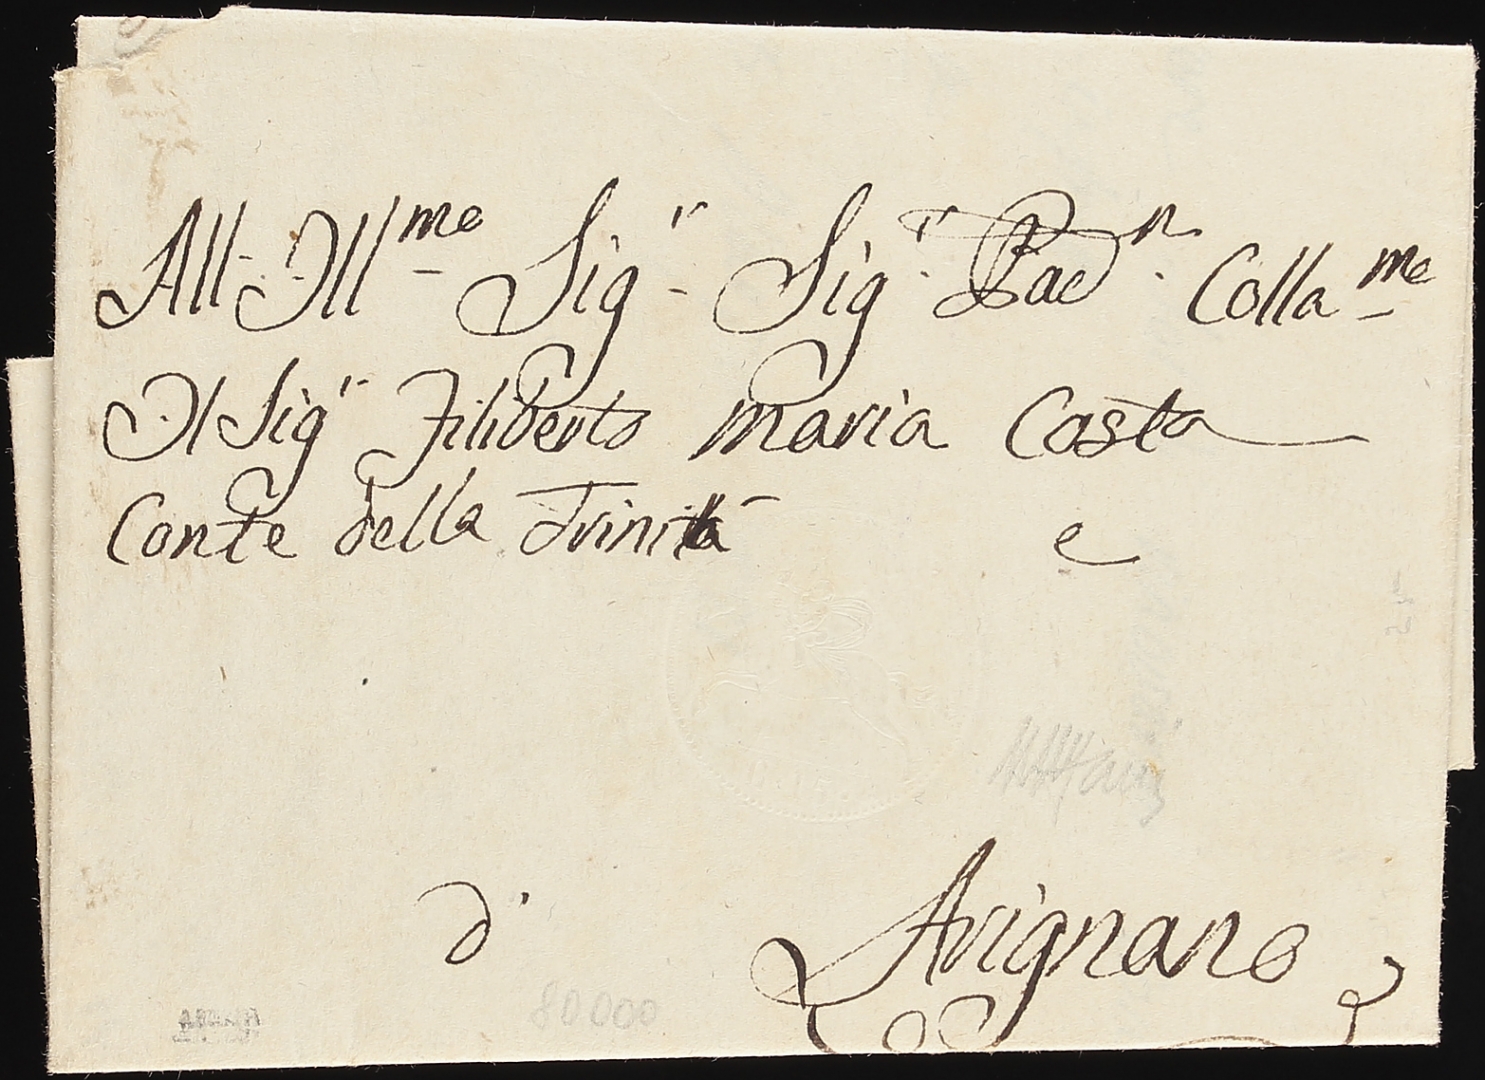 All' Ill.me Sig.r Sig.r Pad.n Colla.me
Il Sig.r Filiberto Maria Costa
Conte della Trinità e
d' Arignano
80000